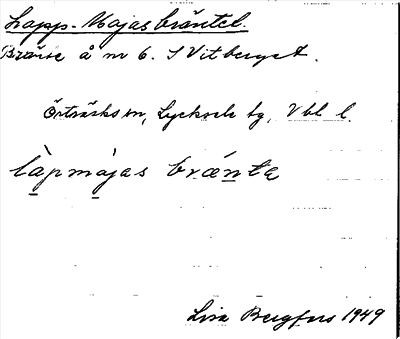 Lapp-Majasbräntet.
Bränne å nr 6. S Vitberget.
Örträsks sn, Lycksele tg, Vbl l.
làpmàjas brǽnta
Lisa Bergfors 1949